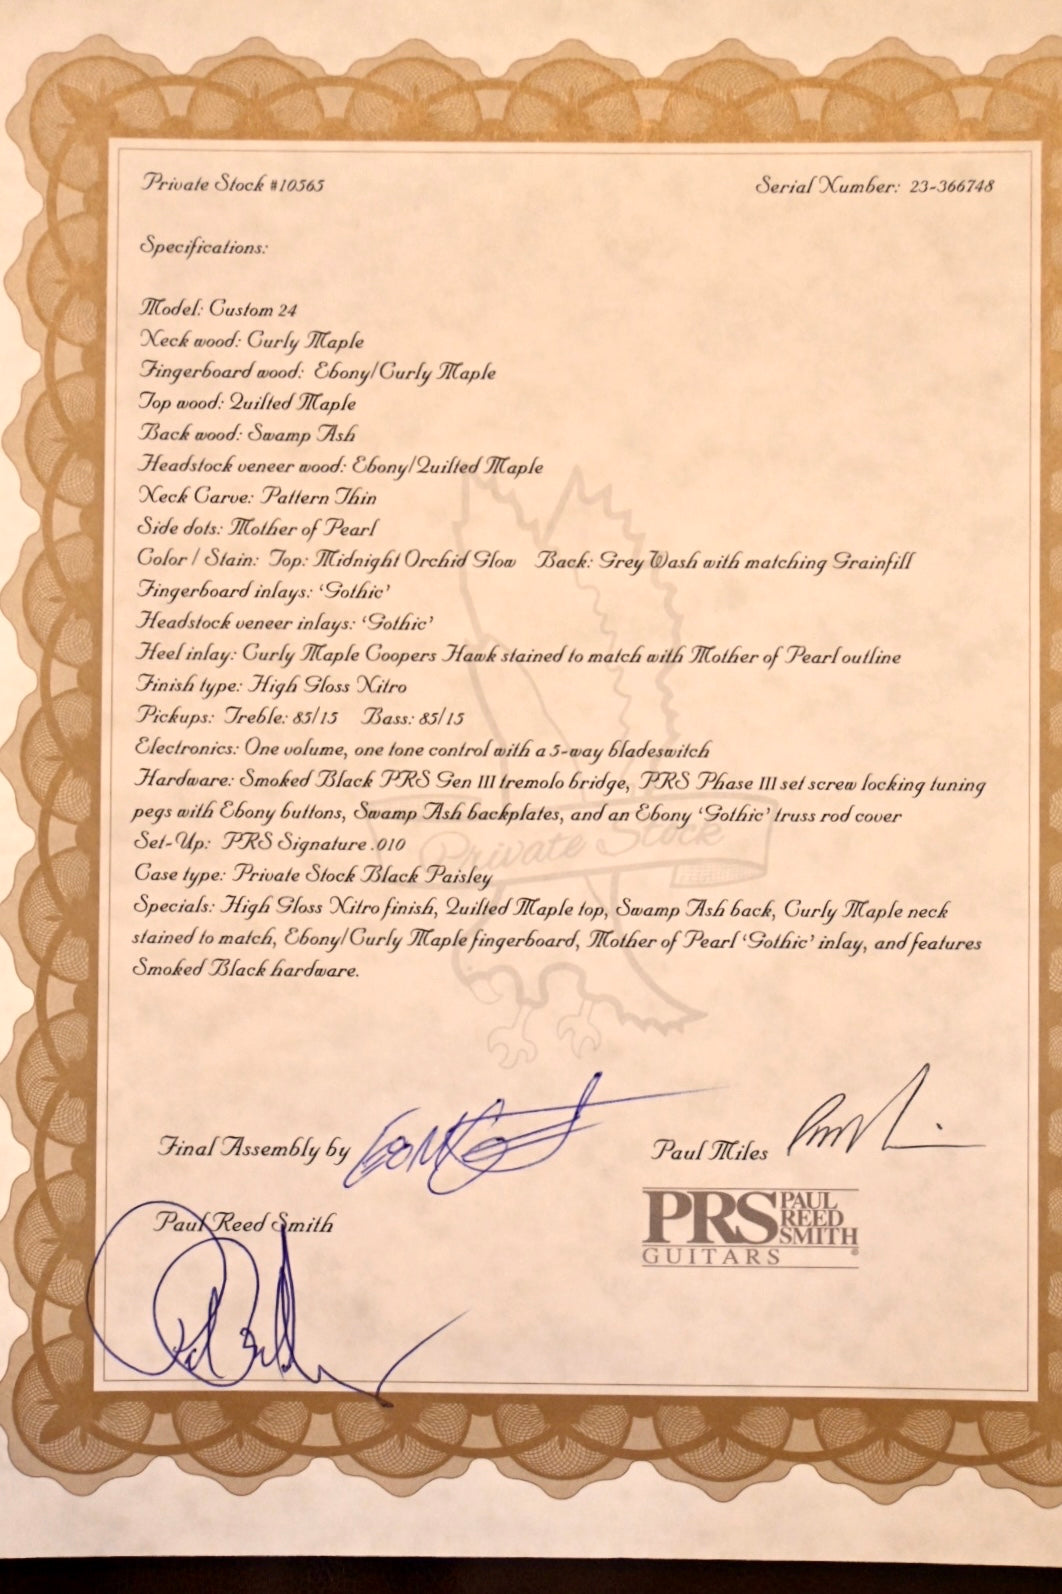 Private Stock #10565
Serial Number: 23-366748
Specifications:
Model: Custom 24
Neck wood: Curly Maple
Fingerboard wood: Ebony/Curly Maple
Top wood: Quilted Maple
Back wood: Swamp Ash
Headstock veneer wood: Ebony/Quilted Maple
Neck Carve: Pattern Thin
Side dots: Mother of Pearl
Color / Stain: Top: Midnight Orchid Glow Back: Grey Wash with matching Grainfill
Fingerboard inlays: ‘Gothic’
Headstock veneer inlays: ‘Gothic’
Heel inlay: Curly Maple Coopers Hawk stained to match with Mother of Pearl outline
Finish type: High Gloss Nitro
Pickups: Treble: 85/15 Bass: 85/15
Electronics: One volume, one tone control with a 5-way bladeswitch
Hardware: Smoked Black PRS Gen III tremolo bridge, PRS Phase III set screw locking tuning
pegs with Ebony buttons, Swamp Ash backplates, and an Ebony ‘Gothic’ truss rod cover
Set-Up: PRS Signature .010
Private Stock
Case type: Private Stock Black Paisley
Specials: High Gloss Nitro finish, Quilted Maple top, Swamp Ash back, Curly Maple neck
stained to match, Ebony/Curly Maple fingerboard, Mother of Pearl ‘Gothic’ inlay, and features
Smoked Black hardware.
Final Assembly by
Paul Miles
Paul Reed Smith
PRS PAUL REED SMITH
GUITARS